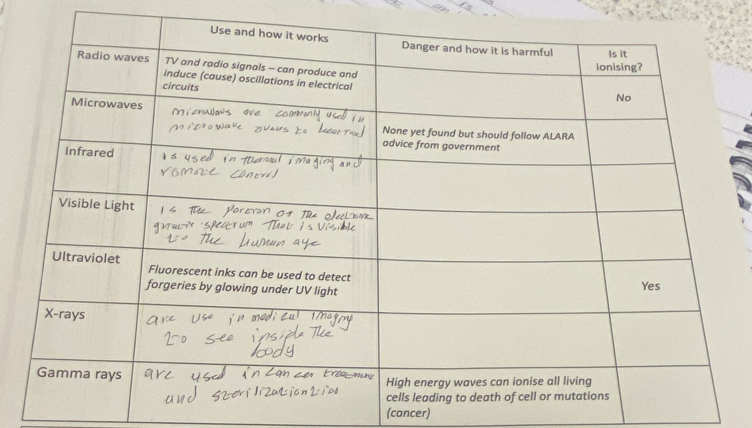 Use and how it works
Danger and how it is harmful
Is it
ionising?
Radio waves
TV and radio signals – can produce and
induce (cause) oscillations in electrical
circuits
No
Microwaves
are commonly used in
microwave ovens to
None yet found but should follow ALARA
advice from government
Infrared
is used in thermal imaging and
remote control
Visible Light
is the portion of the
spectrum that is visible
to the human aye
Ultraviolet
Fluorescent inks can be used to detect
forgeries by glowing under UV light
Yes
X-rays
are use in medical imaging
to see inside the
body
Gamma rays
are used in cancer
and
High energy waves can ionise all living
cells leading to death of cell or mutations
(cancer)